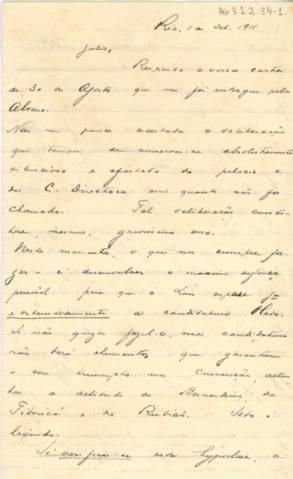 AG 3.1.2.34-1
Rio, 1 de Set. 1911
Julio,
Respondo a vossa carta
de 30 de Agosto que me foi entregue pelo
Alvaro.
Não me parece acertada a deliberação
que tomou de conservar-se absolutamente
silencioso e afastado do palacio e
da C. Directora em quanto não for
chamado. Tal deliberação consti-
tue, mesmo, gravissimo erro.
Neste momento, o que nos cumpre fa-
zer é desenvolver o maximo esforço
possivel para que o Luis já
e ostensivamente a candidatura
Si não quizer fazel-o, essa candidatura
não terá elementos que garantam
o seu triumpho na Convenção, aten-
ta a attitude do Bernardino, do
Tibiriçá e do Rubião. Isto é
liquido.
Si verificar-se esta hypothese, a